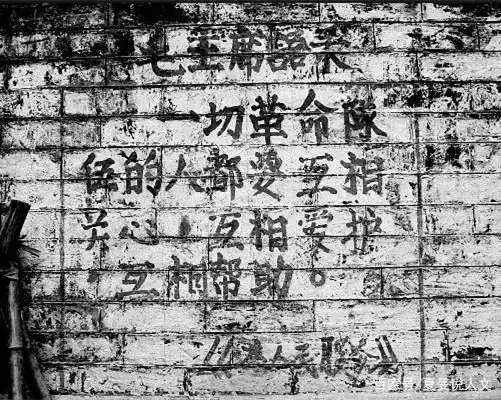 毛主席語录
一切革命隊
伍的人都要互相
关心，互相爱护
，互相帮助。
《为人民服务》
百家号/夏 说人文